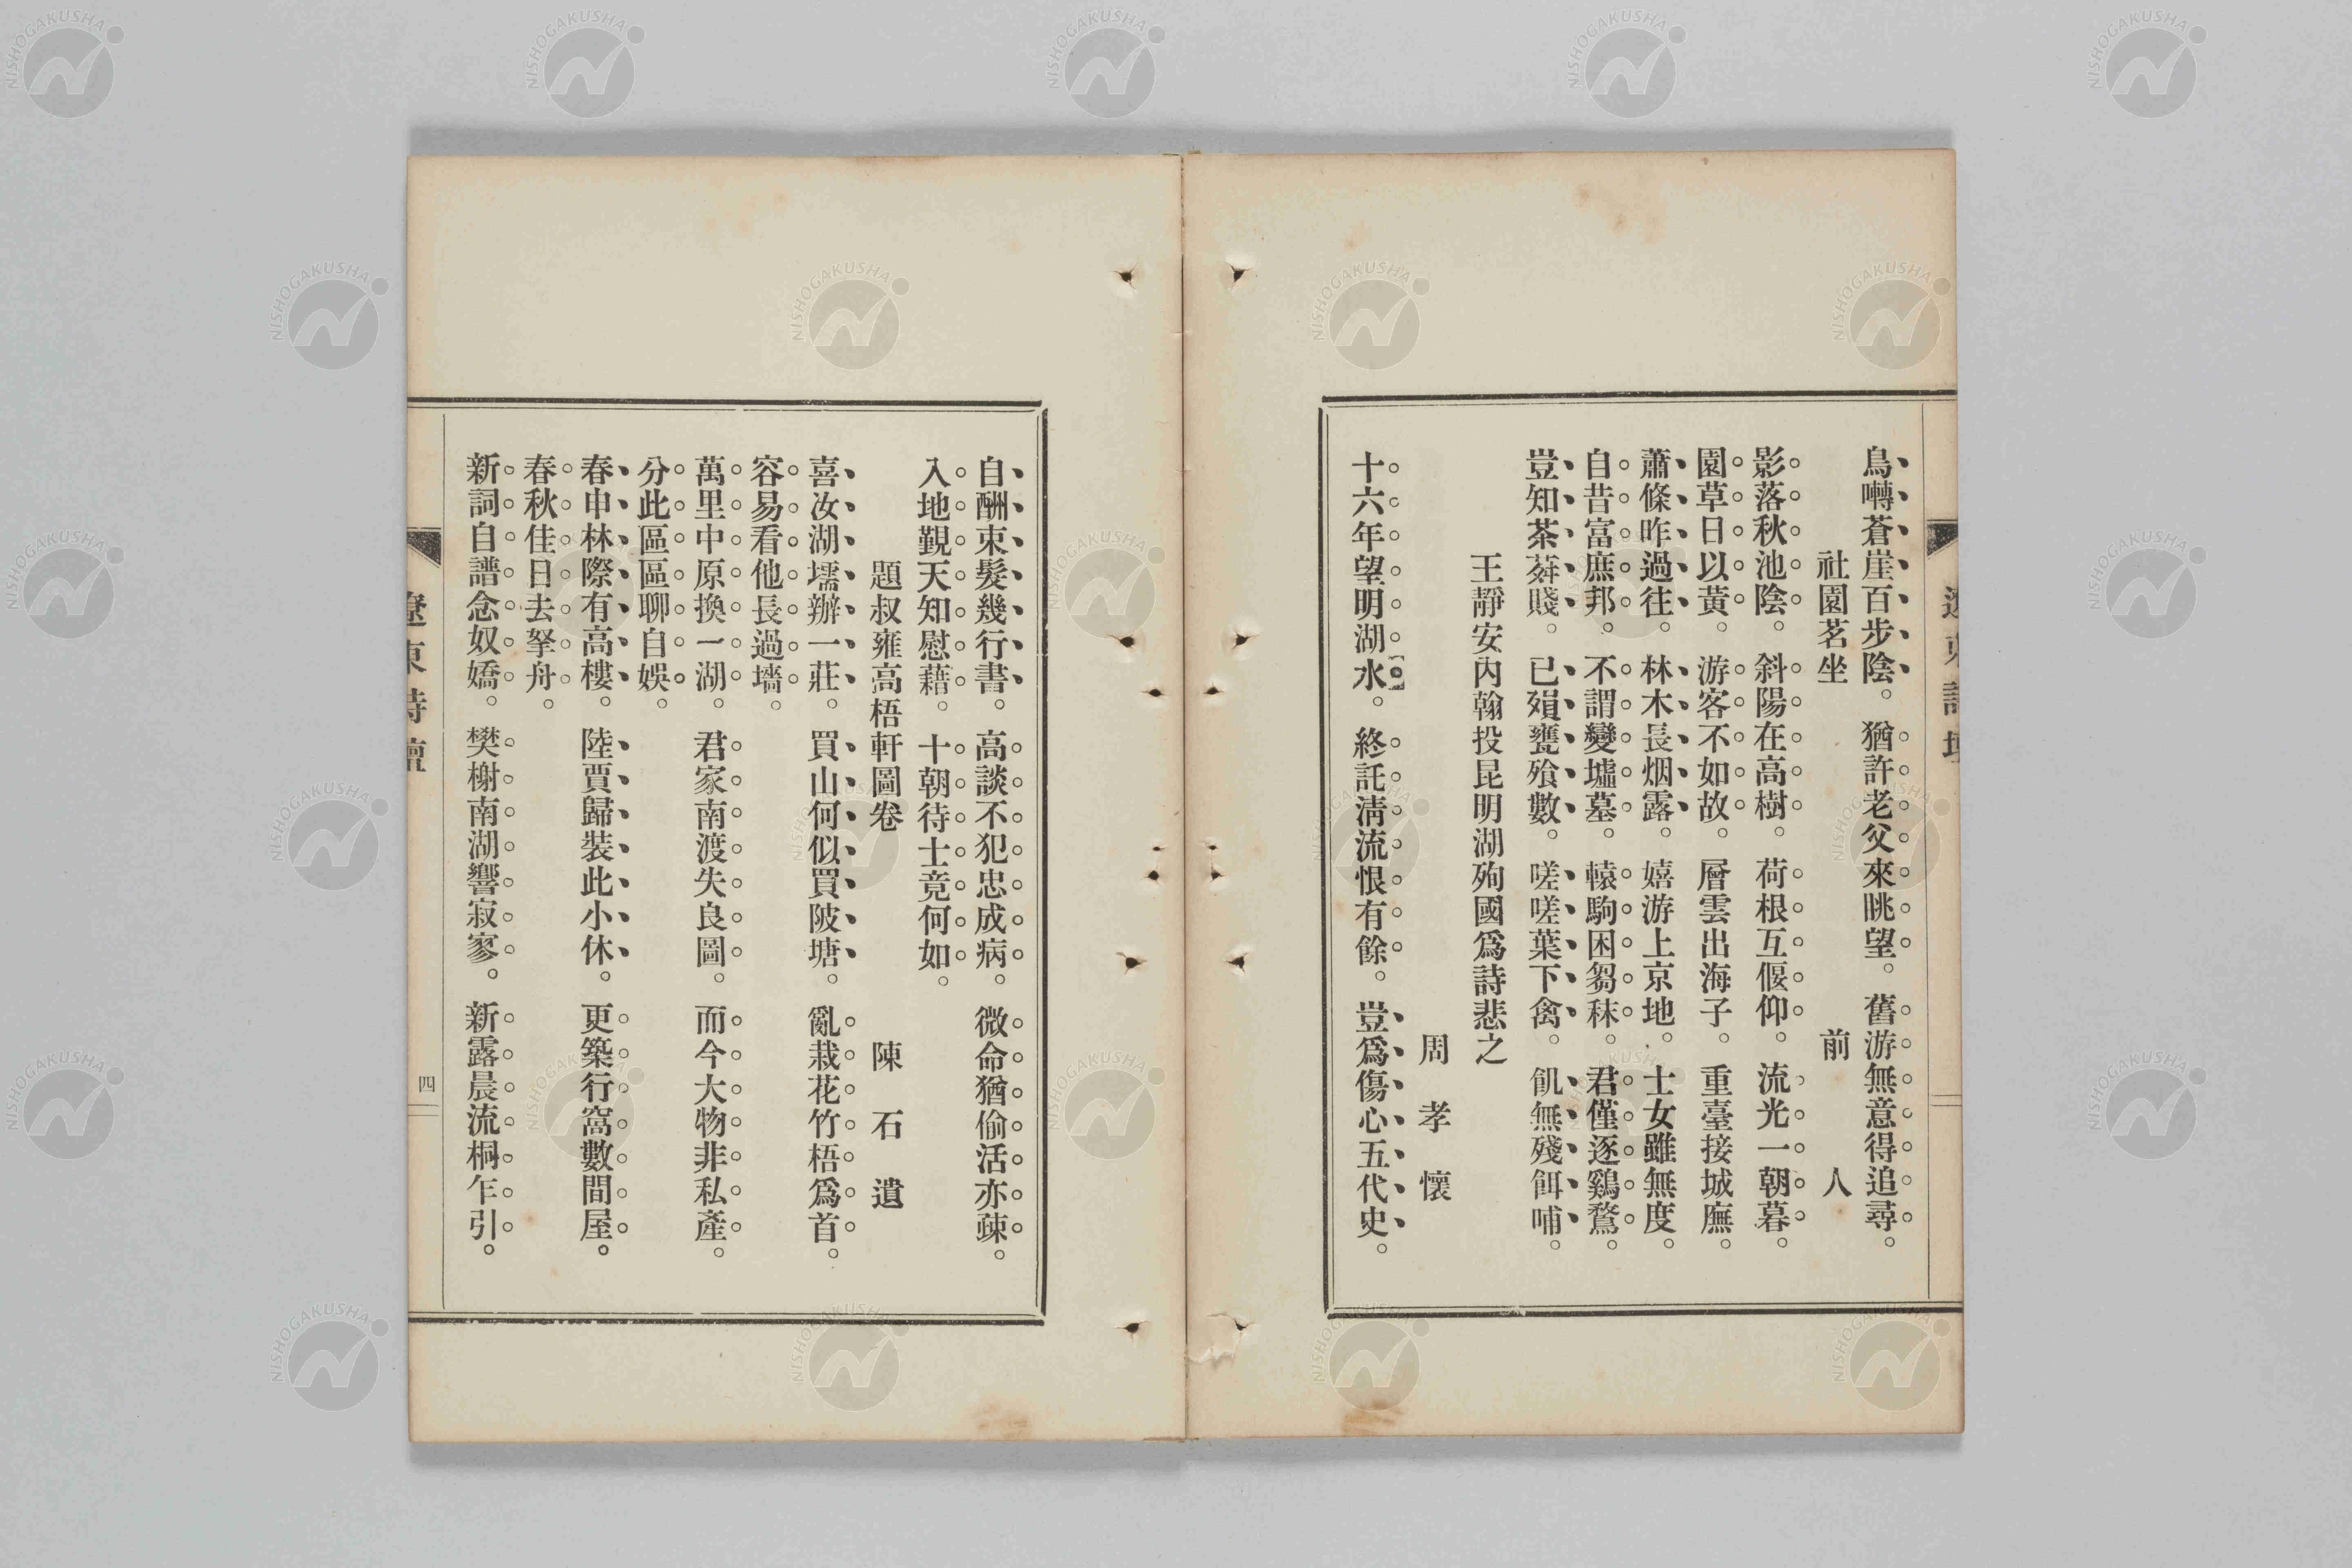 鳥囀蒼崖百步陰。猶許老父來眺望。舊游無意得追尋。
社園茗坐　前　人
影落秋池陰。斜陽在高樹。荷根互偃仰。流光一朝暮。
園草日以黃。游客不如故。層雲出海子。重臺接城廡。
蕭條昨過往。林木長烟露。嬉游上京地。士女雖無度。
自昔富庶邦。不謂變墟墓。轅駒困芻秣。君僅逐鷄鶩。
豈知茶荈賤。已殞甕飱數。嗟嗟葉下禽。飢無殘餌哺。
王靜安內翰投昆明湖殉國爲詩悲之
周　孝　懷
十六年望明湖水。終託淸流恨有餘。豈爲傷心五代史。
自酬束髮幾行書。高談不犯忠成病。微命猶偷活亦疎。
入地觀天知慰藉。十朝待士竟何如。
題叔雍高梧軒圖卷　陳　石　遺
喜汝湖壖辦一莊。買山何似買陂塘。亂栽花竹梧爲首。
容易看他長過墻。
萬里中原換一湖。君家南渡失良圖。而今大物非私產。
分此區區聊自娛。
春申林際有高樓。陸賈歸裝此小休。更築行窩數間屋。
春秋佳日去拏舟。
新詞自譜念奴嬌。樊榭南湖響寂寥。新露晨流桐乍引。
遼東詩壇
四